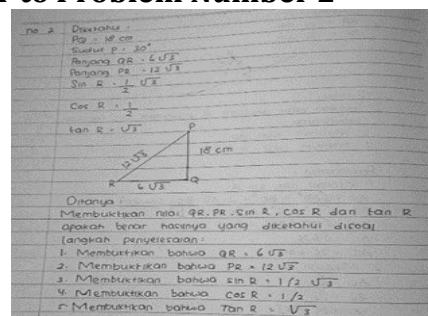 to Problem Number 2
no 2 Diketahui :
PQ = 18 cm
Sudut P = 30°
Panjang QR = 6√3
Panjang PR = 12√3
Sin R = 1/2 √3
Cos R = 1/2
tan R = √3
P
12√3
18 cm
R
Q
6√3
Ditanya :
Membuktikan nilai QR, PR, Sin R, Cos R dan tan R
apakah benar hasilnya yang diketahui disoal
langkah penyelesaian :
1. Membuktikan bahwa QR = 6√3
2. Membuktikan bahwa PR = 12√3
3. Membuktikan bahwa sin R = 1/2 √3
4. Membuktikan bahwa cos R = 1/2
5. Membuktikan bahwa Tan R = √3